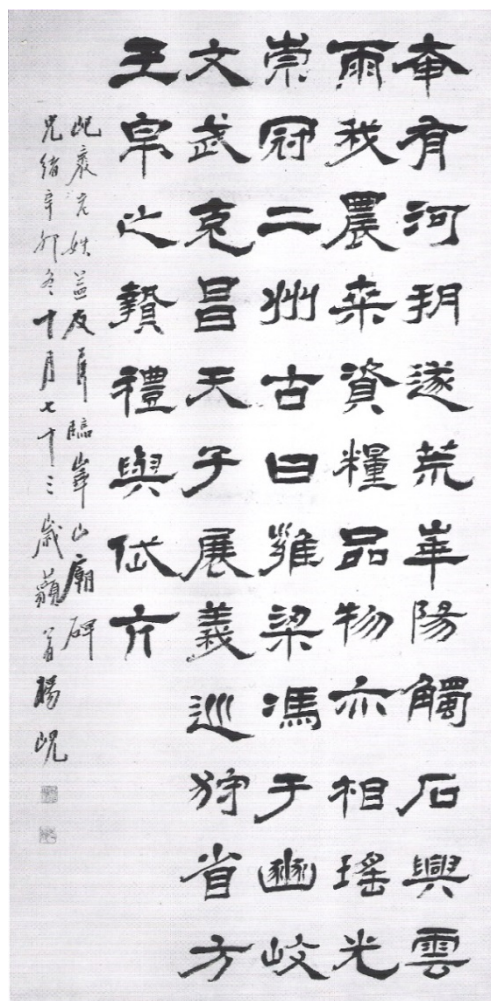 奄有河朔遂荒華陽觸石興雲
雨我農桑資糧品物亦相瑤光
崇冠二州古曰雍梁馮于豳岐
文武克昌天子展義巡狩省方
玉帛之贄禮與岱亢
臨華山廟碑
光緒辛卯冬十月七十三歲藐翁楊峴